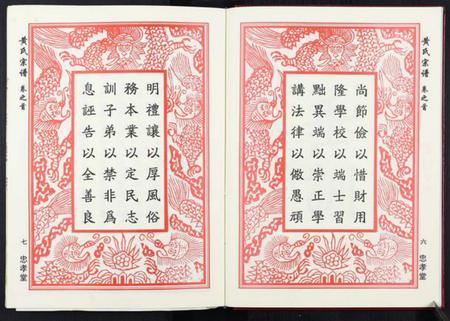 黃氏宗譜 卷之首
尚節儉以惜財用
隆學校以端士習
黜異端以崇正學
講法律以儆愚頑
六 忠孝堂
黃氏宗譜 卷之首
明禮讓以厚風俗
務本業以定民志
訓子弟以禁非為
息誣告以全善良
七 忠孝堂